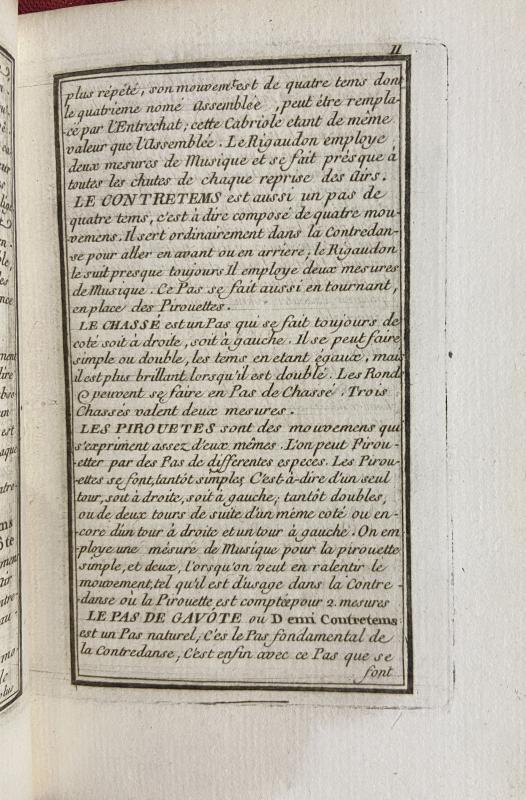 11
plus répété, son mouvem.t est de quatre tems dont
le quatrieme nomé assemblée, peut étre rempla-
cé par l'Entrechat; cette Cabriole etant de même
valeur que l'assemblée. Le Rigaudon employe
deux mesures de Musique et se fait présque à
toutes les chutes de chaque reprise des airs.
LE CONTRETEMS est aussi un pas de
quatre tems, c'est à dire composé de quatre mou-
vemens. Il sert ordinairement dans la Contredan-
se pour aller en avant ou en arriere; le Rigaudon
le suit presque toujours Il employe deux mesures
de Musique. Ce Pas se fait aussi en tournant,
en place des Pirouettes.
LE CHASSÉ est un Pas qui se fait toujours de
coté soit à droite, soit à gauche. Il se peut faire
simple ou double, les tems en etant égaux, mais
il est plus brillant lorsqu'il est doublé. Les Rond
peuvent se faire en Pas de Chassé. Trois
Chassés valent deux mesures.
LES PIROUETES sont des mouvemens qui
s'expriment assez d'eux mêmes. L'on peut Pirou-
etter par des Pas de differentes especes. Les Pirou-
ettes se font, tantôt simples, C'est-à-dire d'un seul
tour, soit à droite, soit à gauche; tantôt doubles,
ou de deux tours de suite d'un même coté ou en-
core d'un tour à droite et un tour à gauche. On em
ploye une mésure de Musique pour la pirouette
simple, et deux, l'orsqu'on veut en ralentir le
mouvement, tel qu'il est d'usage dans la Contre-
danse où la Pirouette est comptée pour 2. mesures
LE PAS DE GAVÔTE ou Demi Contretems
est un Pas naturel; C'es le Pas fondamental de
la Contredanse; C'est enfin avec ce Pas que se
font